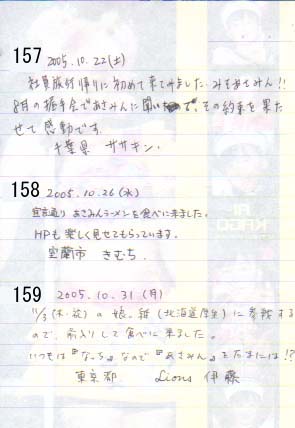 157 2005.10.22(土)
社員旅行帰りに初めて来てみました。みそあさみん!!
8月の握手会であさみんに聞いたので、その約束を果た
せて感動です。
千葉県 ササキン.
158 2005.10.26(水)
宣言通りあさみんラーメンを食べに来ました。
HPも楽しく見せてもらっています。
室蘭市 きむち.
159 2005.10.31(月)
11/3(木・祝)の娘。紺(北海道厚生)に参戦する
ので、前入りして食べに来ました。
いつもは『なっち』なので『あさみん』をたまには!?
東京都 Lions 伊藤